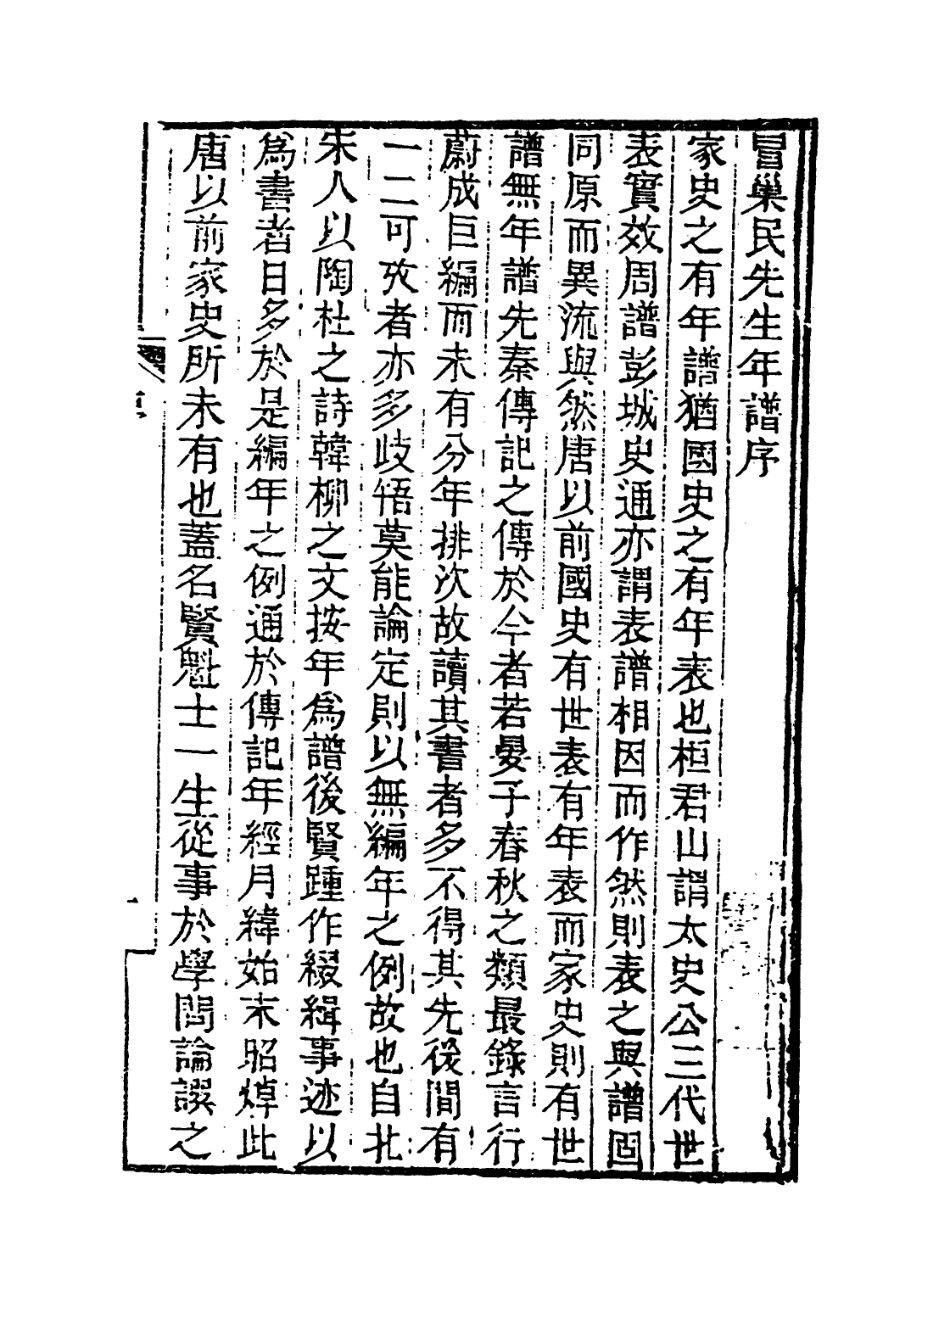 冒巢民先生年譜序
家史之有年譜猶國史之有年表也桓君山謂太史公三代世
表實效周譜彭城史通亦謂表譜相因而作然則表之與譜固
同原而異流與然唐以前國史有世表有年表而家史則有世
譜無年譜先秦傳記之傳於今者若晏子春秋之類最錄言行
蔚成巨編而未有分年排次故讀其書者多不得其先後間有
一二可攷者亦多歧牾莫能論定則以無編年之例故也自北
宋人以陶杜之詩韓柳之文按年爲譜後賢踵作綴緝事迹以
爲書者日多於是編年之例通於傳記年經月緯始末昭焯此
唐以前家史所未有也蓋名賢魁士一生從事於學問論譔之